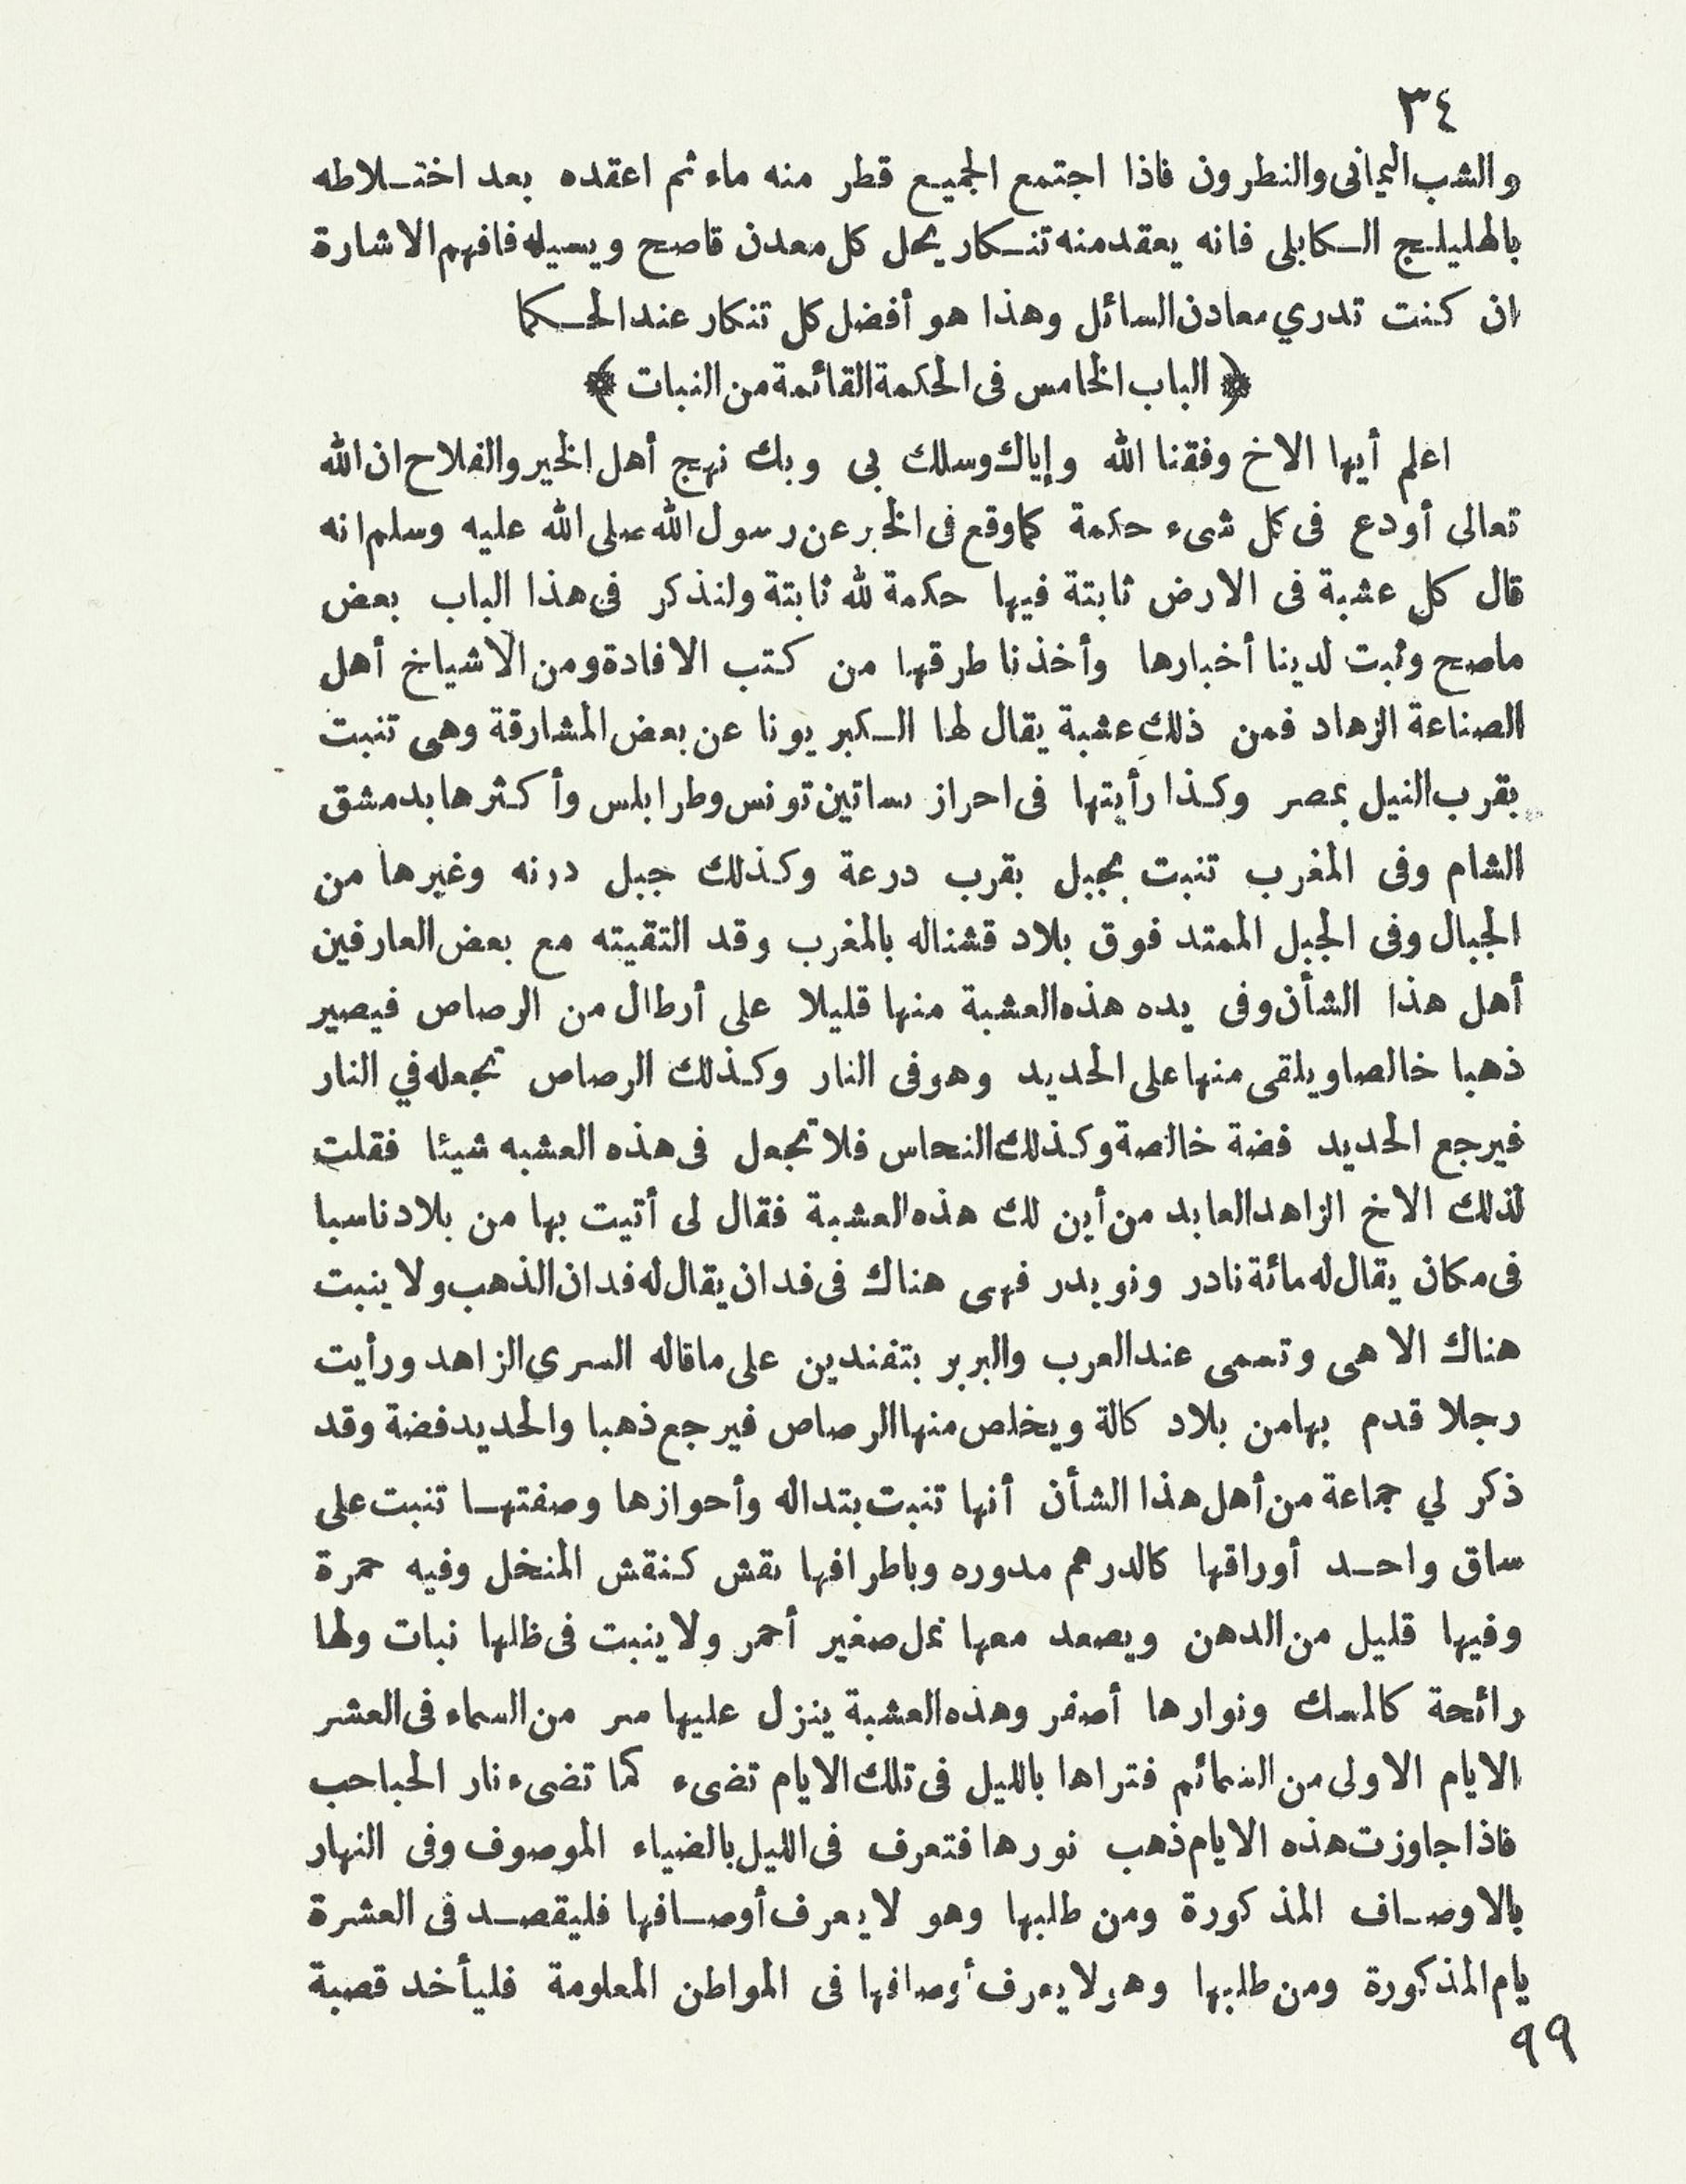 ٣٤
والشب اليماني والنطرون فاذا اجتمع الجميع قطر منه ماء ثم اعقده بعد اختلاطه
بالهليلج الكابلى فانه يعقد منه تنكار يحل كل معدن قاصح ويسيله فافهم الاشارة
ان كنت تدري معادن السائل وهذا هو أفضل كل تنكار عند الحكما
﴿ الباب الخامس فى الحكمة القائمة من النبات ﴾
اعلم أيها الاخ وفقنا الله وإياك وسلك بى وبك نهج أهل الخير والفلاح ان الله
تعالى أودع فى كل شىء حكمة كما وقع فى الخبر عن رسول الله صلى الله عليه وسلم انه
قال كل عشبة فى الارض ثابتة فيها حكمة لله ثابتة ولنذكر فى هذا الباب بعض
ماصح وثبت لدينا أخبارها وأخذنا طرقها من كتب الافادة ومن الاشياخ أهل
الصناعة الزهاد فمن ذلك عشبة يقال لها الكبريونا عن بعض المشارقة وهى تنبت
بقرب النيل بمصر وكذا رأيتها فى احراز بساتين تونس وطرابلس وأكثرها بدمشق
الشام وفى المغرب تنبت بجبل بقرب درعة وكذلك جبل درنه وغيرها من
الجبال وفى الجبل الممتد فوق بلاد قشناله بالمغرب وقد التقيته مع بعض العارفين
أهل هذا الشأن وفى يده هذه العشبة منها قليلا على أرطال من الرصاص فيصير
ذهبا خالصا ويلقى منها على الحديد وهو فى النار وكذلك الرصاص تجعله في النار
فيرجع الحديد فضة خالصة وكذلك النحاس فلا تجعل فى هذه العشبه شيئا فقلت
لذلك الاخ الزاهد العابد من أين لك هذه العشبة فقال لى أتيت بها من بلاد ناسبا
فى مكان يقال له مائة نادر ونويدر فهى هناك فى فدان يقال له فدان الذهب ولا ينبت
هناك الا هى وتسمى عند العرب والبربر بتفندين على ماقاله السرى الزاهد ورأيت
رجلا قدم بها من بلاد كالة ويخلص منها الرصاص فيرجع ذهبا والحديد فضة وقد
ذكر لي جماعة من أهل هذا الشأن أنها تنبت بتداله وأحوازها وصفتها تنبت على
ساق واحد أوراقها كالدرهم مدوره وباطرافها نقش كنقش المنخل وفيه حمرة
وفيها قليل من الدهن ويصعد معها نمل صغير أحمر ولا ينبت فى ظلها نبات ولها
رائحة كالمسك ونوارها أصفر وهذه العشبة ينزل عليها سر من السماء فى العشر
الايام الاولى من السمائم فتراها بالليل فى تلك الايام تضىء كما تضىء نار الحباحب
فاذا جاوزت هذه الايام ذهب نورها فتعرف فى الليل بالضياء الموصوف وفى النهار
بالاوصاف المذكورة ومن طلبها وهو لا يعرف أوصافها فليقصد فى العشرة
يام المذكورة ومن طلبها وهو لا يعرف أوصافها فى المواطن المعلومة فليأخد قصبة
٩٩